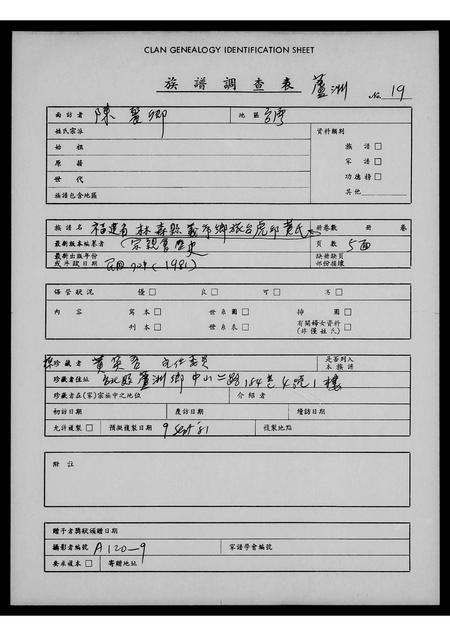 CLAN GENEALOGY IDENTIFICATION SHEET
族譜調查表 蘆洲 No. 19
面訪者 陳 卿 地區 台灣
姓氏宗派 資料類別
始祖 族譜 □
原籍 家譜 □
世代 功德榜 □
族譜包含地區 其他
族譜名 福建省林森縣義序鄉旅台虎邱黃氏 冊卷數 冊 卷
最新版本編纂者 (宗親會歷史 頁數 5面
最新出版年份或手政日期 民国70年(1981) 缺冊缺頁部份損壞
保管狀況 優 □ 良 □ 可 □ 劣 □
內容 寫本 □ 世系圖 □ 掃圖 □
刊本 □ 世系表 □ 有關婦女資料(非僅姓氏) □
珍藏者 黃 主任委員 是否列入本族譜
珍藏者住址 台北縣蘆洲鄉中山二路184巷4號1樓
珍藏者在(家)宗族中之地位 介紹者
初訪日期 度訪日期 續訪日期
允許複製 □ 預擬複製日期 9 Sept '81 複製地點
附註
贈予者獎狀頒贈日期
攝影者編號 A120-9 家譜學會編號
要求複本 □ 寄贈地址